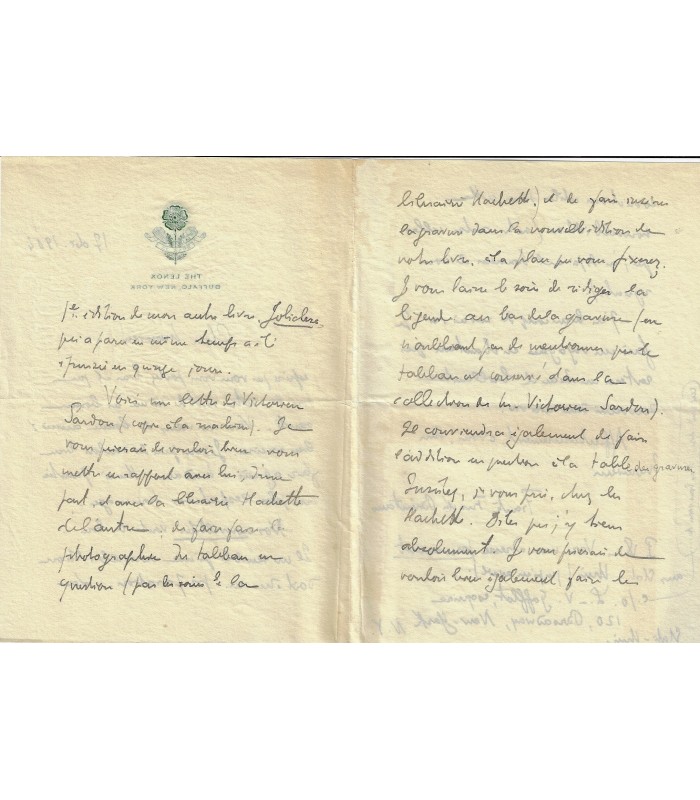 THE LENOX
BUFFALO, NEW YORK
1re édition de mon autre livre, Jolicler,
qui a paru en même temps a été
épuisée en quinze jours.
Voici une lettre de Victorien
Sardou (copie à la machine). Je
vous prierais de vouloir bien vous
mettre en rapport avec lui d'une
part, et avec la librairie Hachette
de l'autre, de faire faire
photographier du tableau en
question (par les soins de la
librairie Hachette) et de faire insérer
la gravure dans la nouvelle édition de
votre livre, à la place que vous fixerez.
Je vous laisse le soin de rédiger la
légende au bas de la gravure (en
n'oubliant pas de mentionner que le
tableau est conservé dans la
collection de M. Victorien Sardou).
Il conviendra également de faire
l'addition en question à la table des gravures
Insistez, je vous prie, chez les
Hachette. Dites que j'y tiens
absolument. Je vous prierais de
vouloir bien également faire le